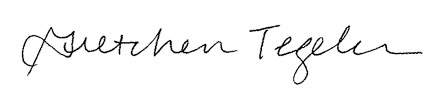 Gretchen Tegeler